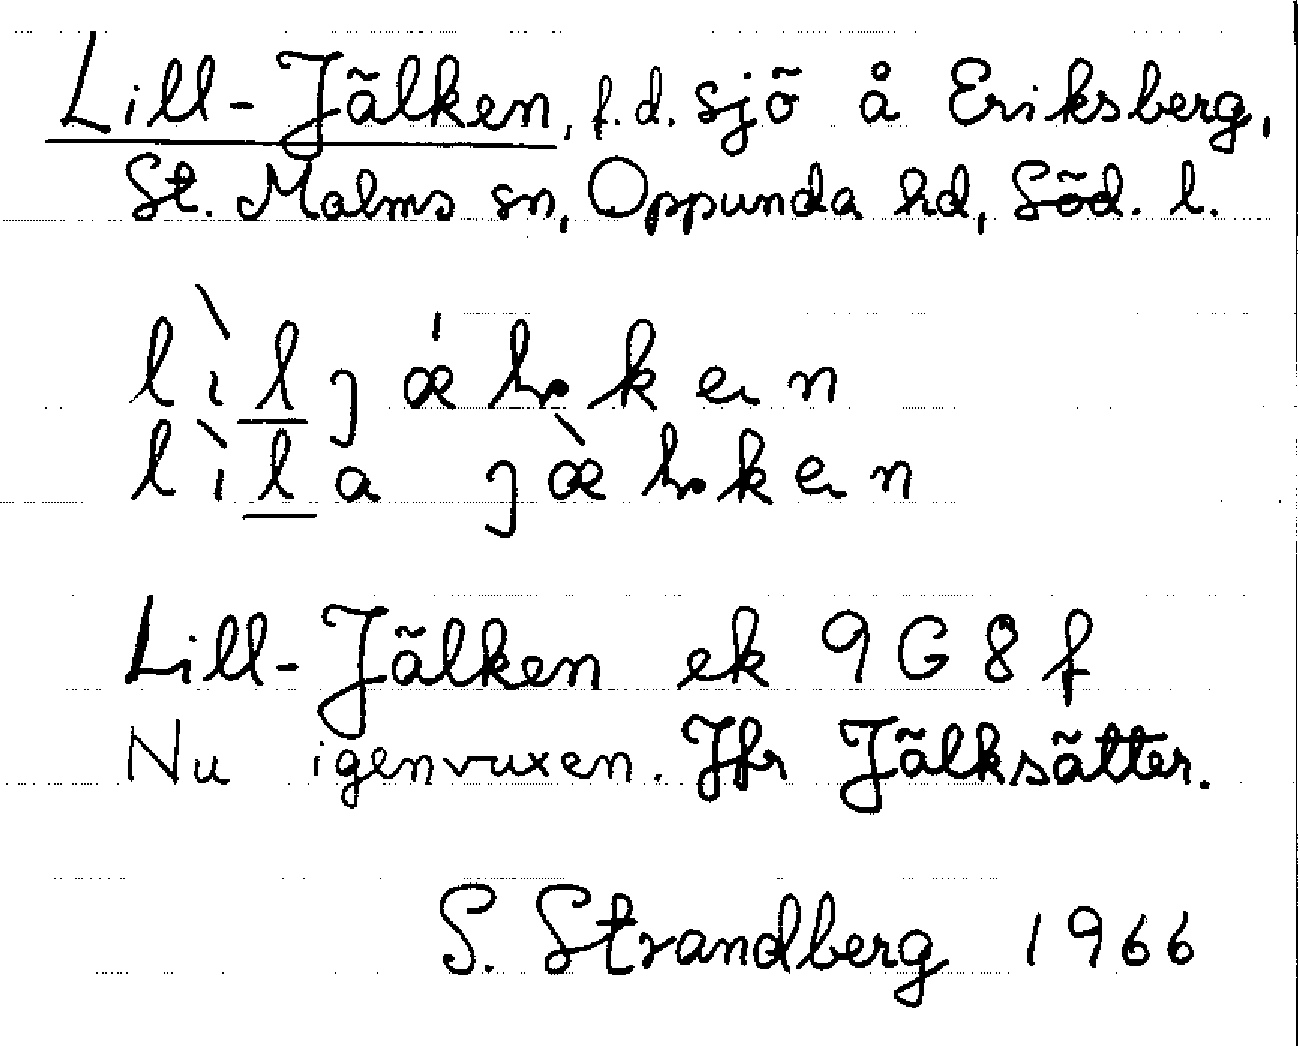 Lill-Jälken, f.d. sjö å Eriksberg,
St. Malms sn, Oppunda hd, Söd. l.
lìlȷǽlken
lìla ȷæ̀lken
Lill-Jälken ek 9G8f
Nu igenvuxen. Jfr Jälksätter.
S. Strandberg 1966